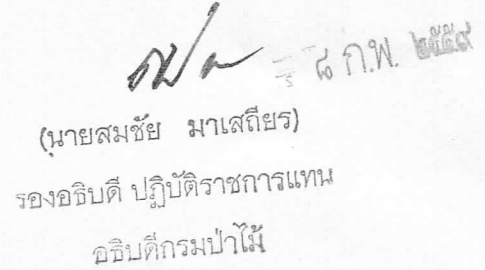 - ๘ ก.พ. ๒๕๕๙
(นายสมชัย มาเสถียร)
รองอธิบดี ปฏิบัติราชการแทน
อธิบดีกรมป่าไม้